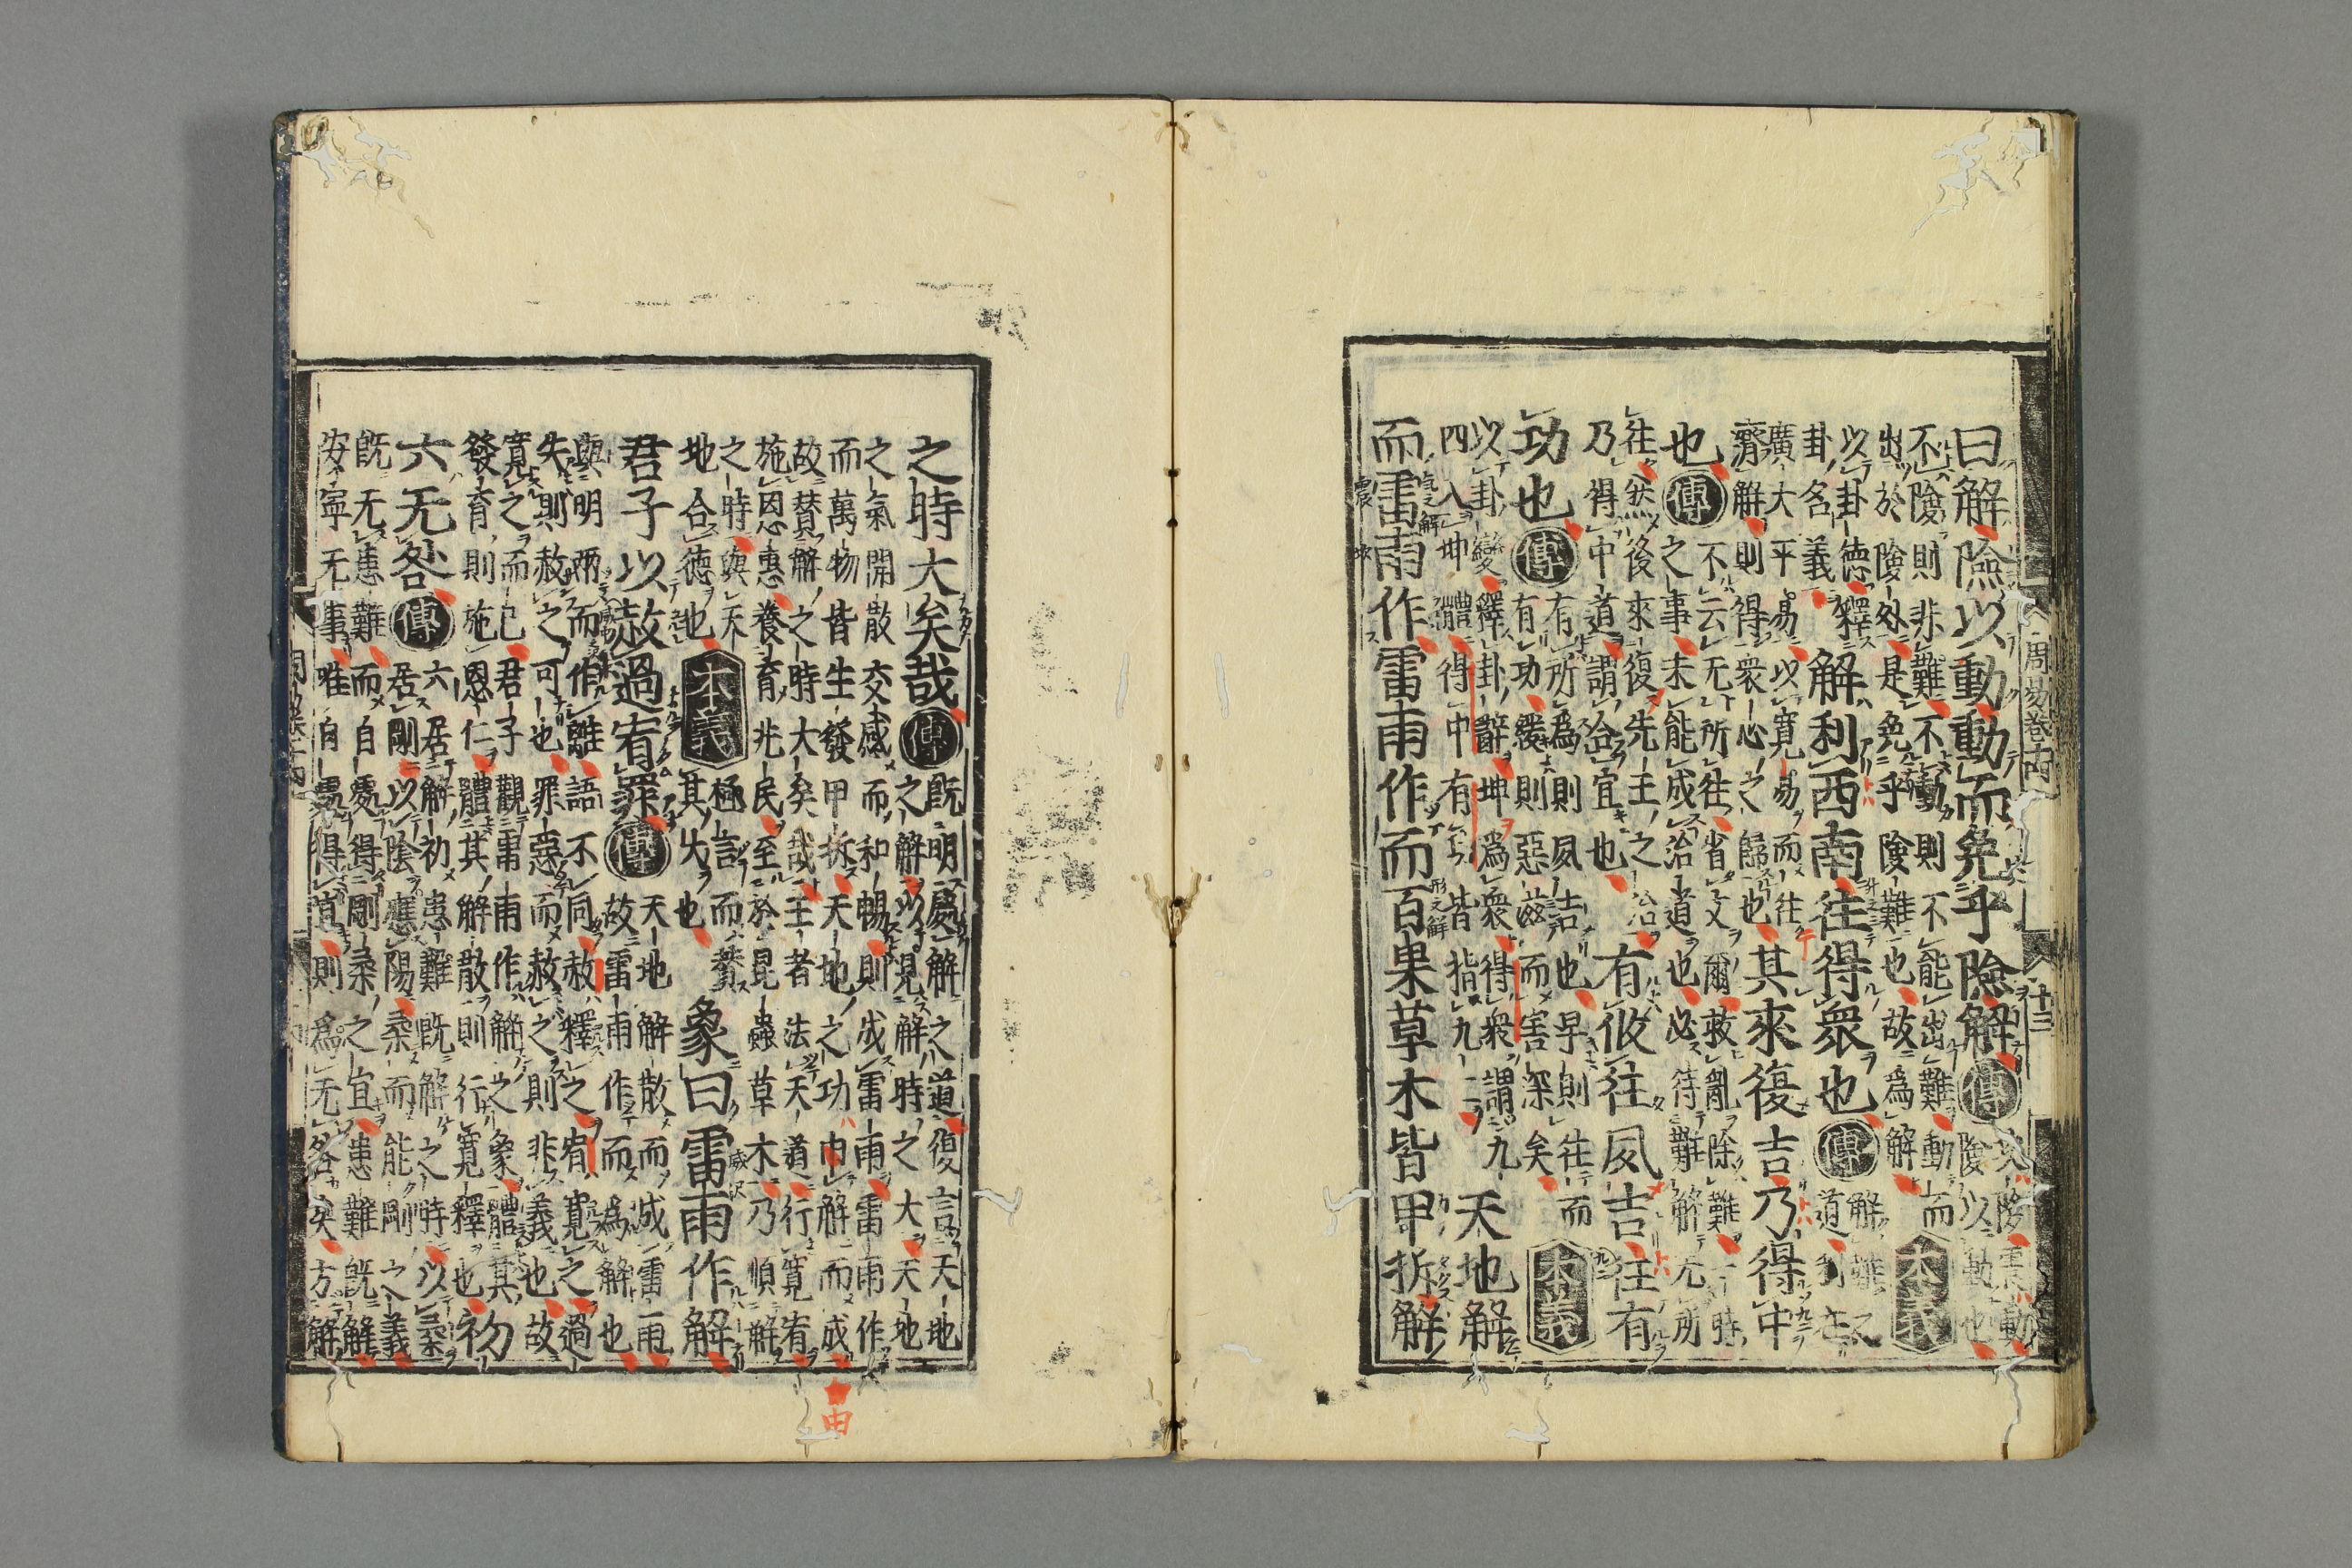 周易卷十四
十三
曰解險以動動而免乎險解傳坎險震動
險以動也
不險則非難不動則不能出難動而
出於險外是免乎險難也故為解本義
以卦德釋
卦名義解利西南往得衆也傳解難之
道利在
廣大平易以寬易而往
濟解則得衆心之歸也其來復吉乃得中
也傳不云无所往省文爾救亂除難一時
之事未能成治道也必待難解无所
往然後來復先王之治
乃得中道謂合宜也有攸往夙吉往有
功也傳有所為則夙吉也早則往而
有功緩則惡滋而害深矣本義
以卦變釋卦辭坤為衆得衆謂九
四入坤體得中有功皆指九二天地解
而雷雨作雷雨作而百果草木皆甲拆解
之時大矣哉傳既明處解之道復言天地
之解以見解時之大天地
之氣開散交感而和暢則成雷雨雷雨作
而萬物皆生發甲拆天地之功由解而成
故賛解之時大矣哉王者法天道行寬宥
施恩惠養育兆民至於昆蟲草木乃順解
之時與天
地合德也本義極言而賛
其大也象曰雷雨作解
君子以赦過宥罪傳天地解散而成雷雨
故雷雨作而為解也
與明兩而作離語不同赦釋之宥寬之過
失則赦之可也罪惡而赦之則非義也故
寬之而已君子觀雷雨作解之象體其
發育則施恩仁體其解散則行寬釋也初
六无咎傳六居解初患難既解之時以柔
居剛以陰應陽柔而能剛之義
既无患難而自處得剛柔之宜患難既解
安寧无事唯自處得宜則為无咎矣方解
由